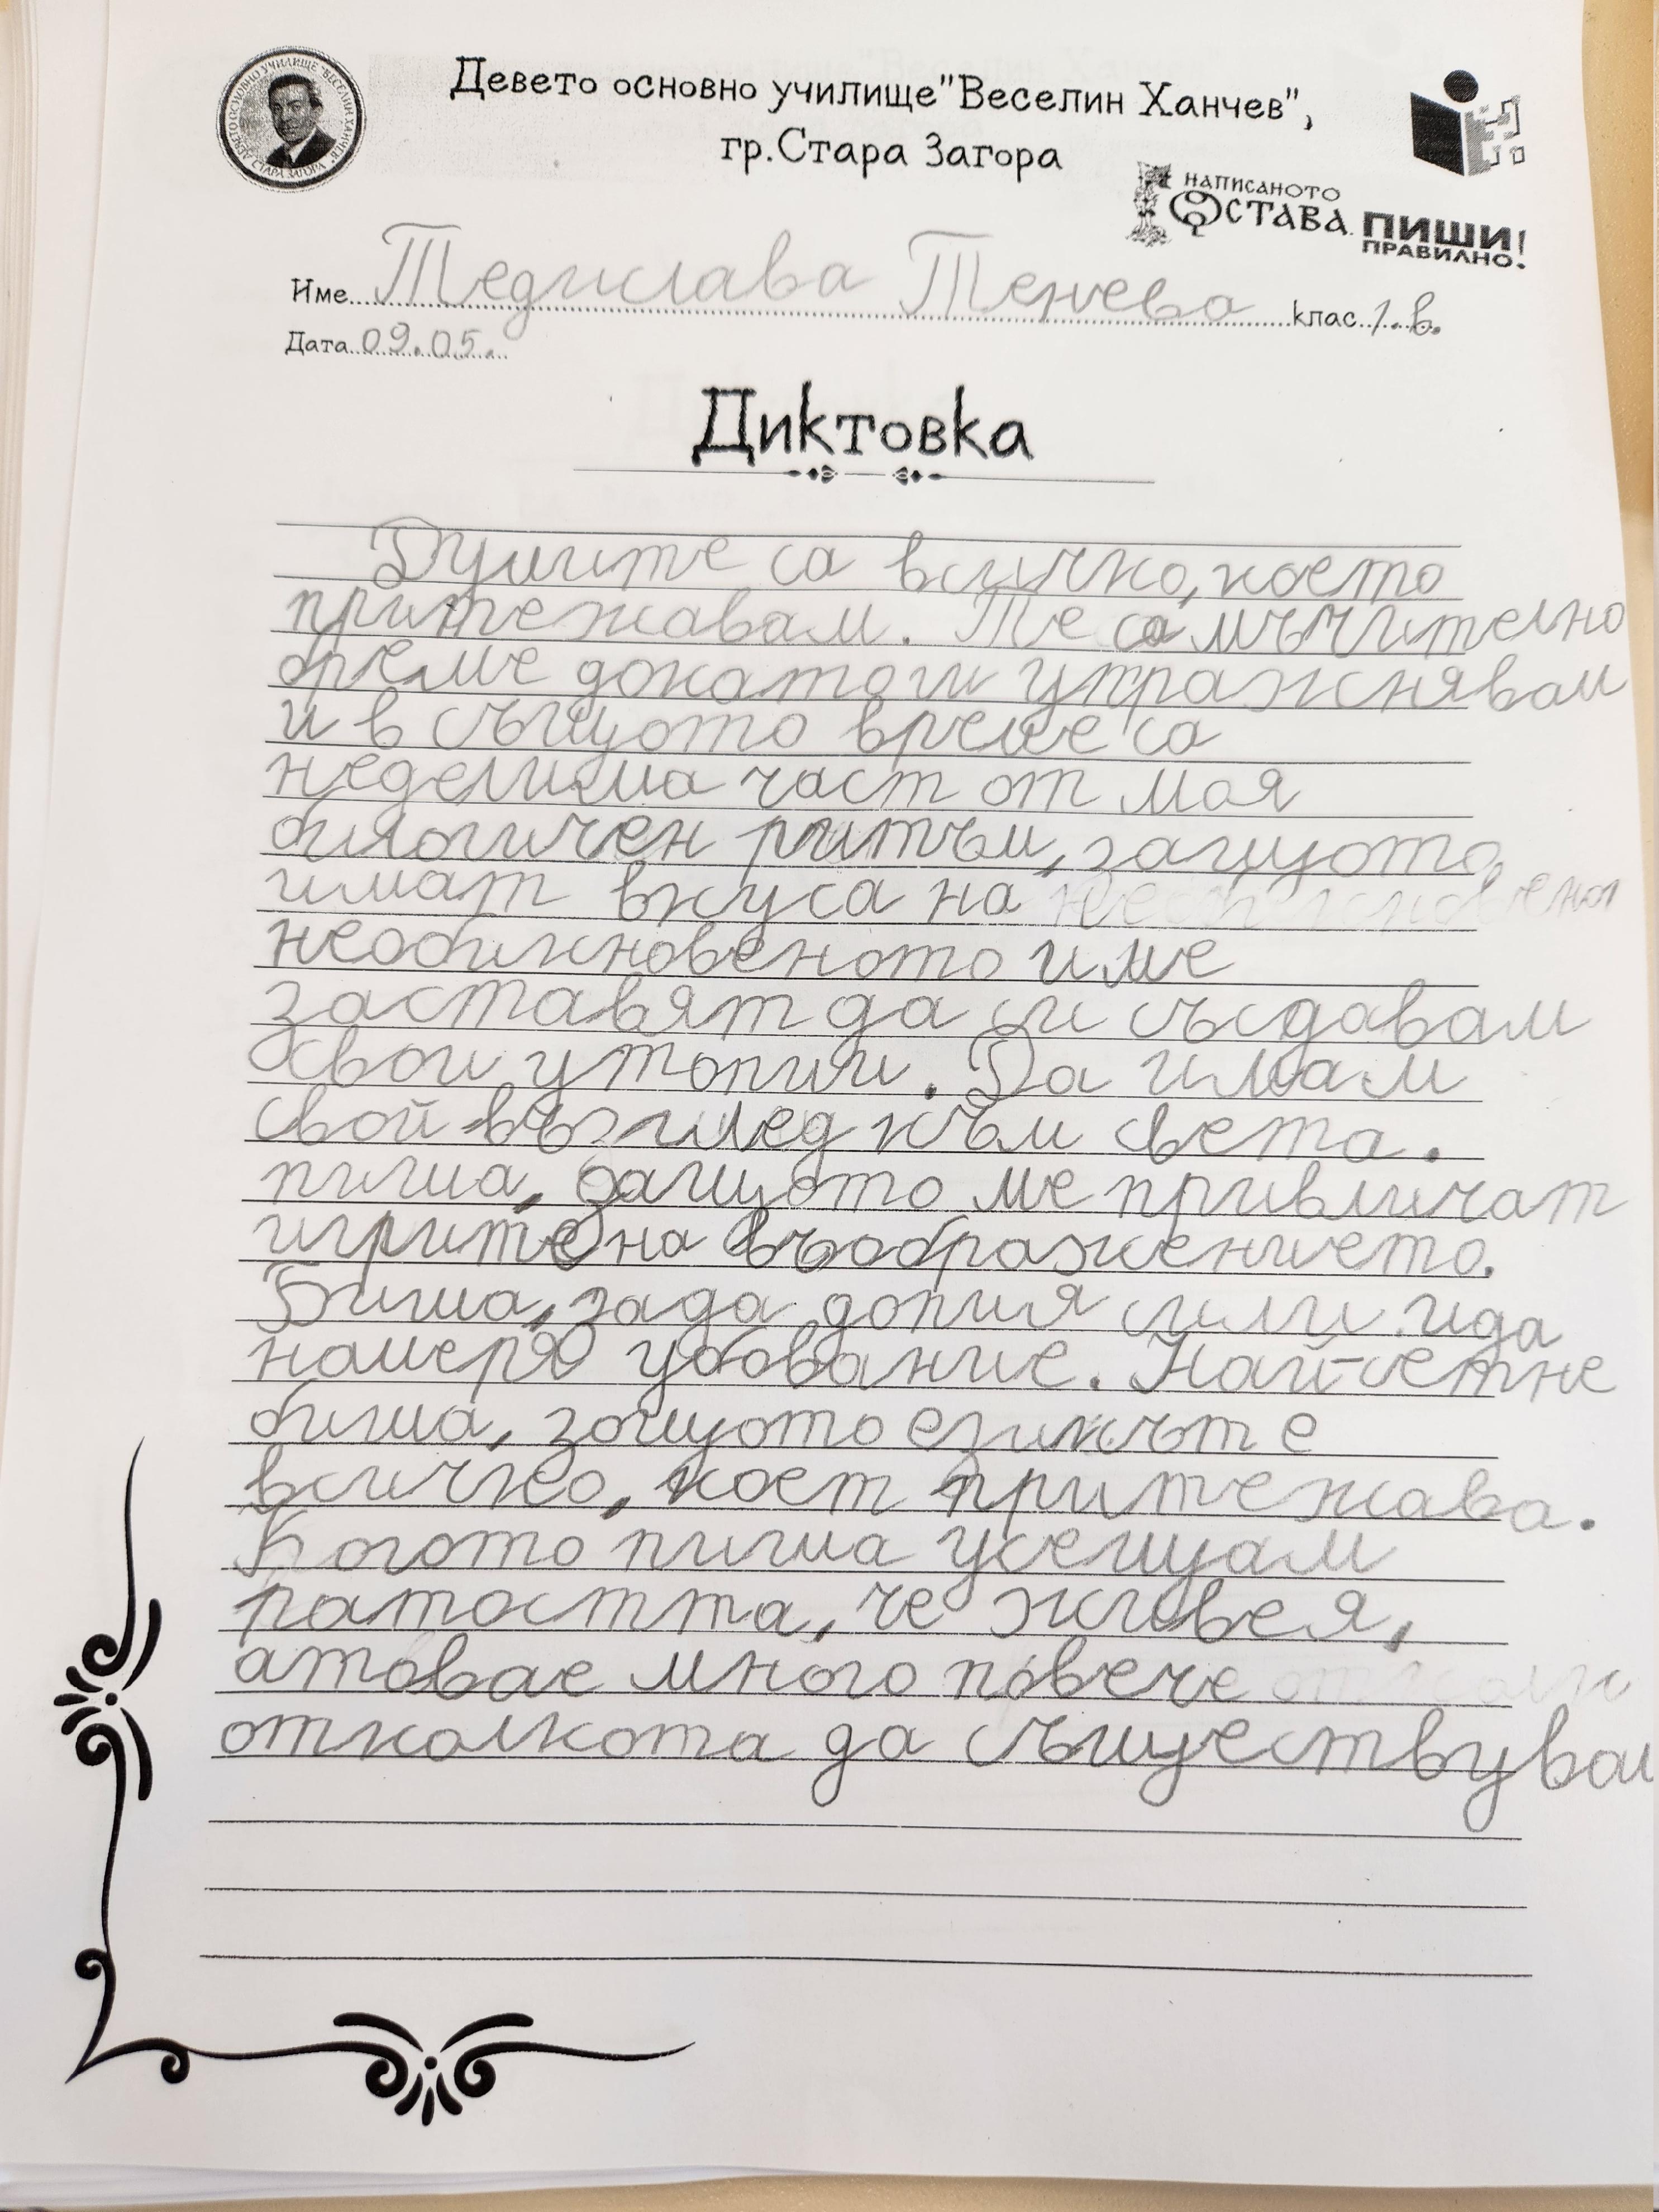 Девето основно училище "Веселин Ханчев",
гр.Стара Загора
НАПИСАНОТО
ОСТАВА.
ПИШИ
ПРАВИЛНО!
Име Тедислава Тенева клас 1.в.
Дата 09.05.
Диктовка
Думите са всичко, което
притежавам. Те са мъчително
бреме докато ги упражнявам
и в същото време са
неделима част от моя
биологичен ритъм, защото
имат вкуса на
необикновеното име
заставят да си създавам
свои утопии. Да имам
свой възглед към света.
пиша, защото ме привличат
игрите на въображението.
Биша, зада допия сили ида
намеря убование. Най-сетне
биша, защото езикът е
всичко, коет притежава.
Когото пиша усещам
ратостта, че живея,
атовае много повече
отколкота да съществувам